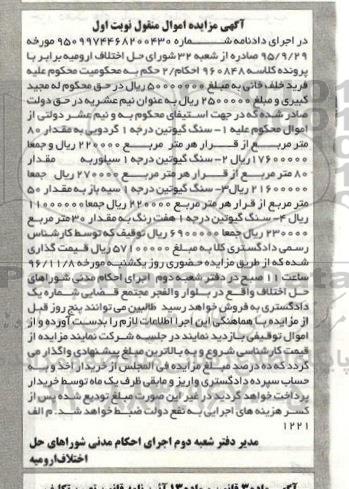 آگهی مزایده اموال منقول نوبت اول
در اجرای دادنامه شماره ۹۵۰۹۹۷۴۴۶۸۲۰۰۴۳۰ مورخه
۹۵/۹/۲۹ صادره از شعبه ۳۲ شورای حل اختلاف ارومیه برابر با
پرونده کلاسه ۹۶۰۸۴۸ احکام/۲ حکم به محکومیت محکوم علیه
فرید خلف خانی به مبلغ ۵۰۰۰۰۰۰۰ ریال در حق محکوم له مجید
کبیری و مبلغ ۲۵۰۰۰۰۰ ریال به عنوان نیم عشریه در حق دولت
صادر شده که در جهت استیفای محکوم به و نیم عشر دولتی از
اموال محکوم علیه ۱- سنگ گیوتین درجه ۱ گردویی به مقدار ۸۰
متر مربع از قرار هر متر مربع ۲۲۰۰۰۰ ریال و جمعا
۱۷۶۰۰۰۰۰ ریال ۲- سنگ گیوتین درجه ۱ سیلور به مقدار
۸۰ متر مربع از قرار هر متر مربع ۲۷۰۰۰۰ ریال جمعا
۲۱۶۰۰۰۰۰ ریال ۳- سنگ گیوتین درجه ۱ سیه باز به مقدار ۵۰
متر مربع از قرار هر متر مربع ۲۲۰۰۰۰ ریال جمعا ۱۱۰۰۰۰۰۰
ریال ۴- سنگ گیوتین درجه ۱ هفت رنگ به مقدار ۳۰ متر مربع
۲۳۰۰۰۰ ریال جمعا ۶۹۰۰۰۰۰ ریال توقیف که توسط کارشناس
رسمی دادگستری کلا به مبلغ ۵۷۱۰۰۰۰۰ ریال قیمت گذاری
شده که از طریق مزایده حضوری روز یکشنبه مورخه ۹۶/۱۱/۸
ساعت ۱۱ صبح در دفتر شعبه دوم اجرای احکام مدنی شوراهای
حل اختلاف واقع در بلوار والفجر مجتمع قضایی شماره یک
دادگستری به فروش خواهد رسید طالبین می توانند پنج روز قبل
از مزایده با هماهنگی این اجرا اطلاعات لازم را بدست آورده و از
اموال توقیفی بازدید نمایند در جلسه شرکت نمایند مزایده از
قیمت کارشناسی شروع و به بالاترین مبلغ پیشنهادی واگذار می
گردد که ده درصد مبلغ مزایده فی المجلس از خریدار اخذ و به
حساب سپرده دادگستری واریز و مابقی ظرف یک ماه توسط خریدار
پرداخت خواهد گردید در غیر این صورت مبلغ تودیع شده پس از
کسر هزینه های اجرایی به نفع دولت ضبط خواهد شد. م الف
۱۲۲۱
مدیر دفتر شعبه دوم اجرای احکام مدنی شوراهای حل
اختلاف ارومیه